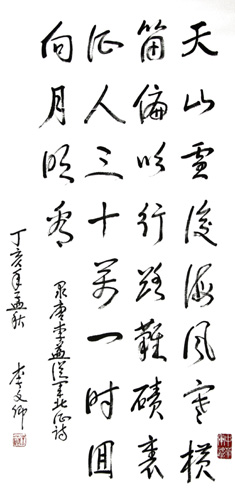 天山雪後海风寒横
笛偏吹行路難磧裏
征人三十万一时回
向月明看
录唐李益從军北征诗
丁亥年孟秋 李文卿